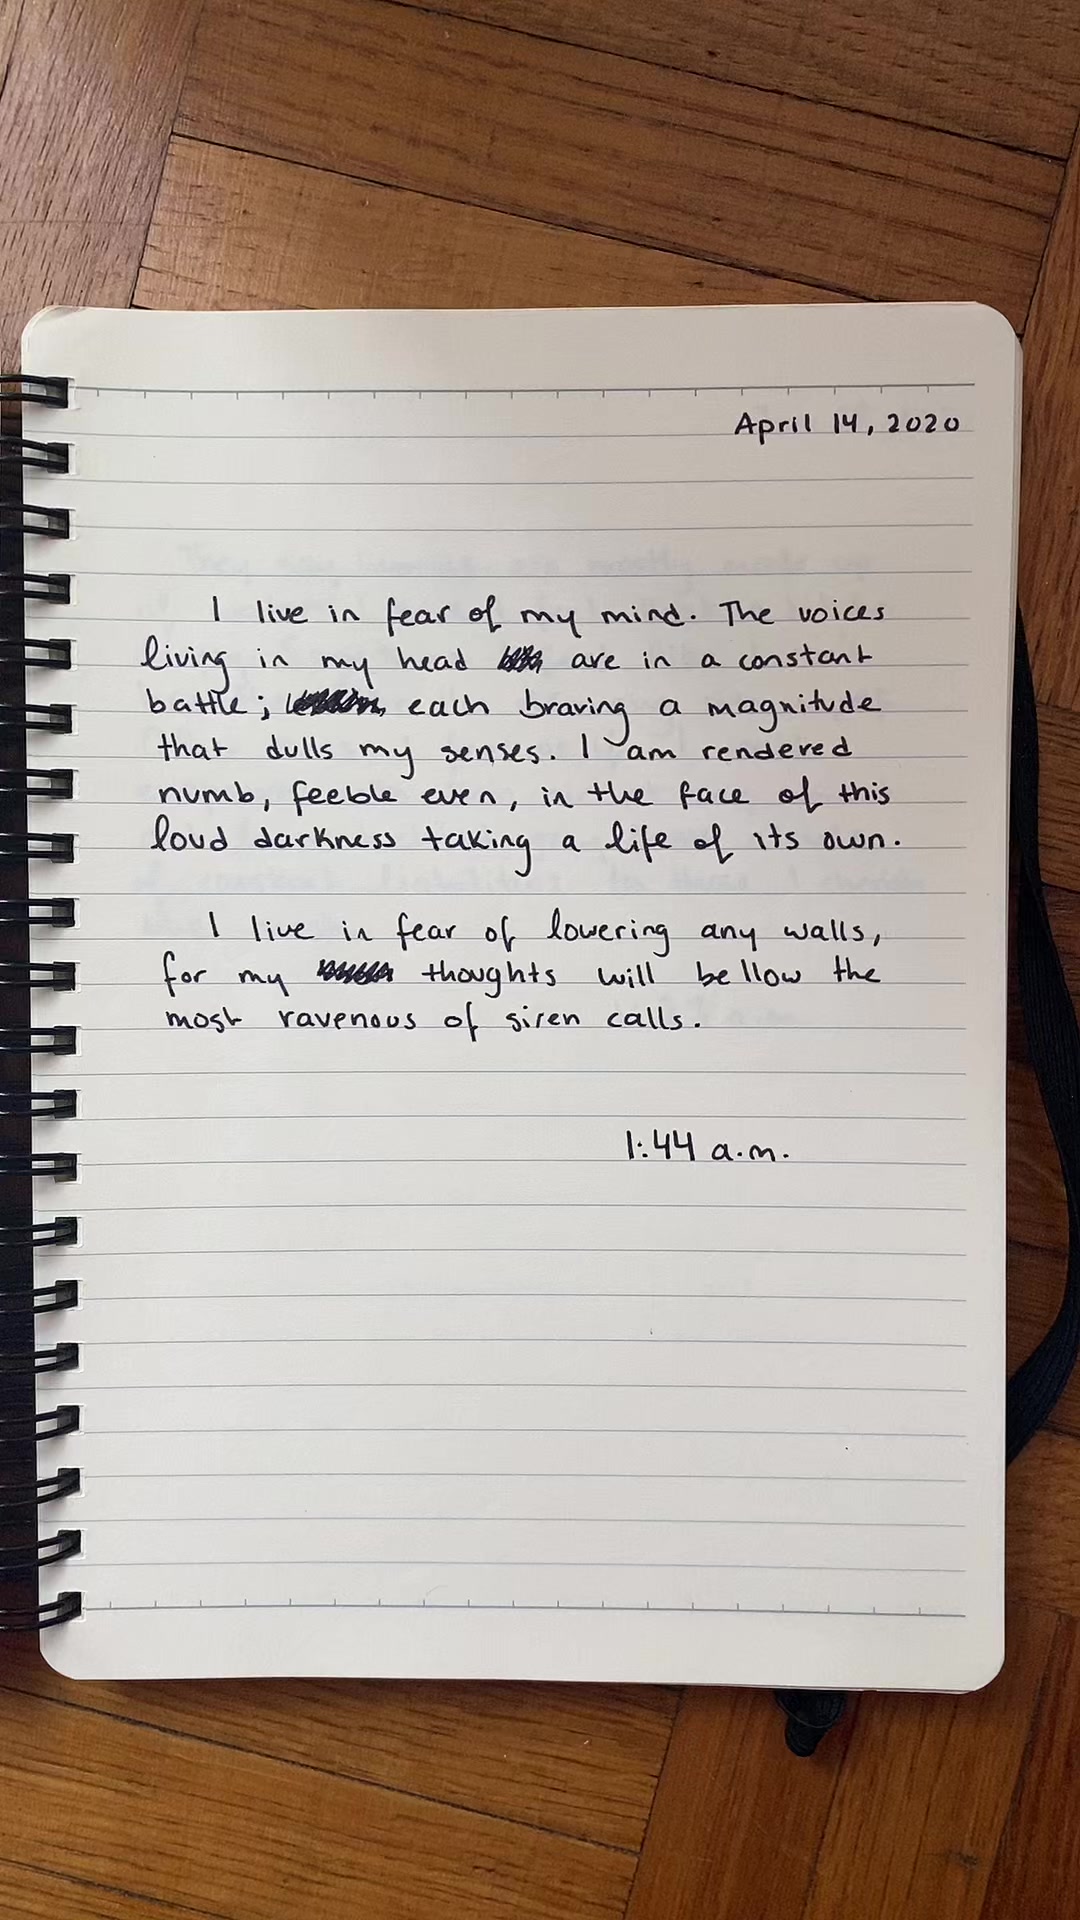 April 14, 2020
I live in fear of my mind. The voices
living in my head are in a constant
battle; each braving a magnitude
that dulls my senses. I am rendered
numb, feeble even, in the face of this
loud darkness taking a life of its own.
I live in fear of lowering any walls,
for my thoughts will bellow the
most ravenous of siren calls.
1:44 a.m.